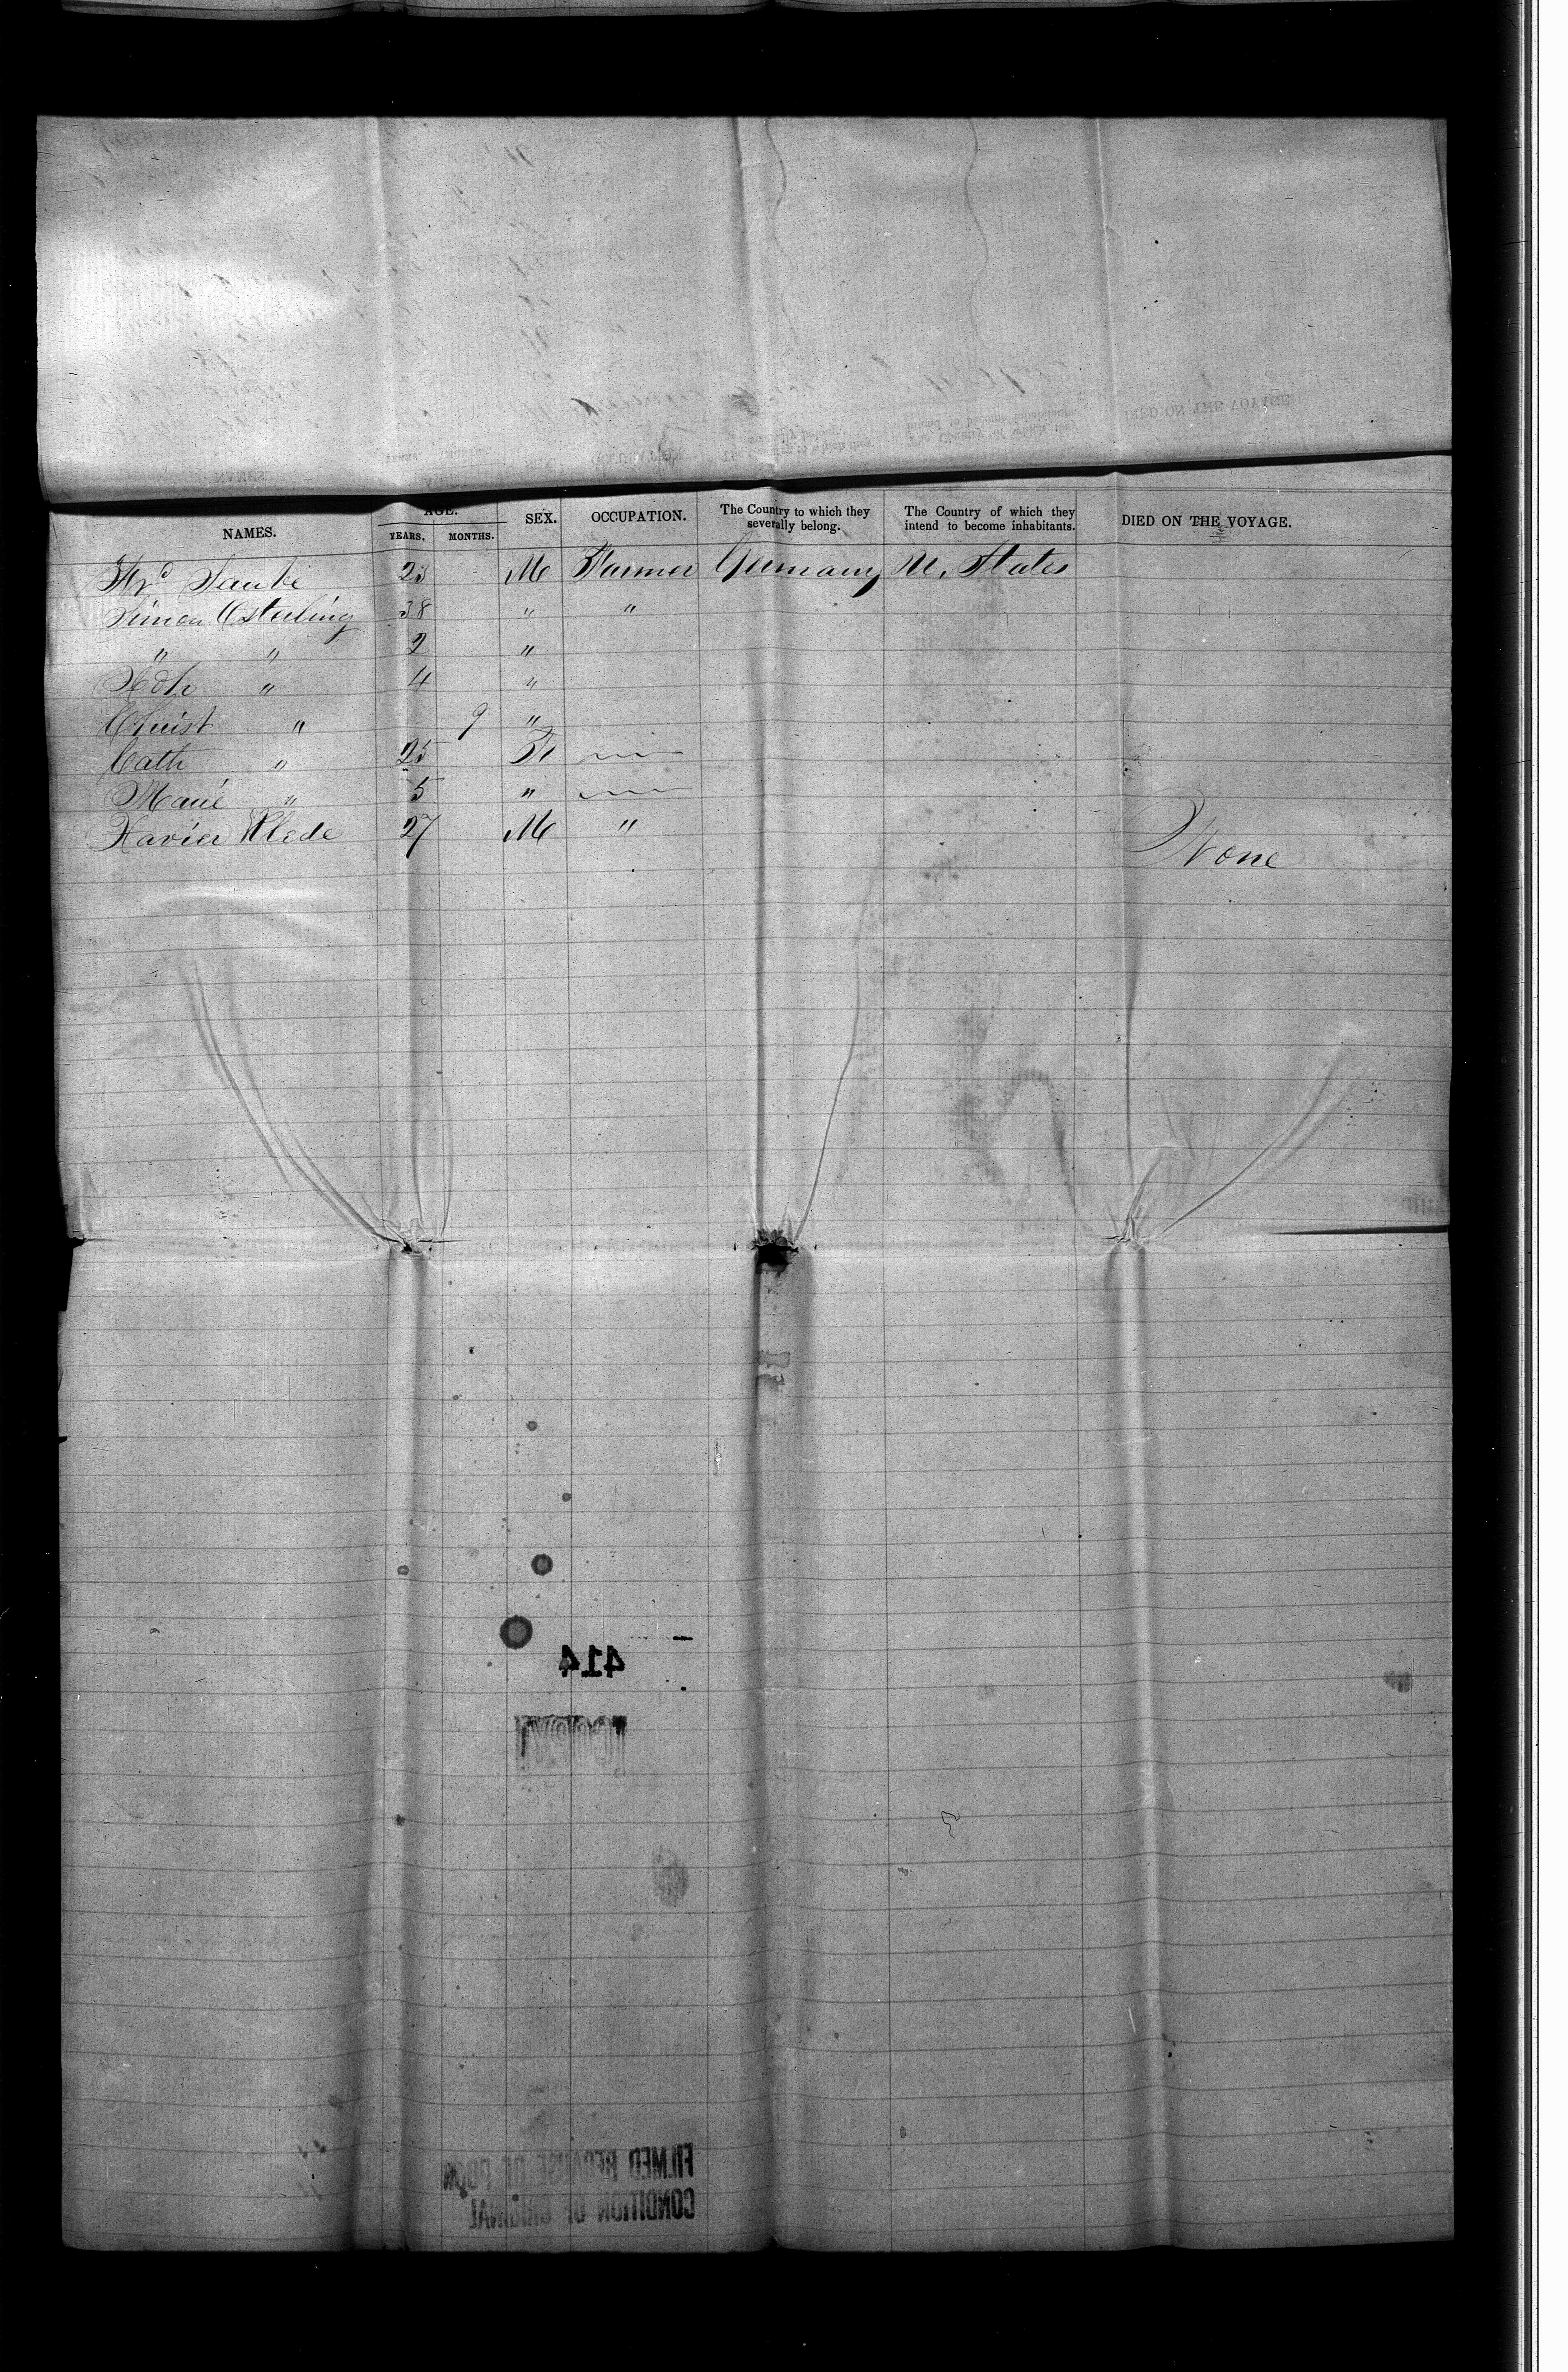 NAMES. AGE. YEARS. MONTHS. SEX. OCCUPATION. The Country to which they severally belong. The Country of which they intend to become inhabitants. DIED ON THE VOYAGE.
Frd Taube 23 M Farmer Germany U. States
Simon Osterling 38 " "
" " 2 "
Adh " 4 "
Christ " 9 "
Cath " 25 F
Marie " 5 "
Xavier Klede 27 M "
None
414
COPY
FILMED BECAUSE OF POOR
CONDITION OF ORIGINAL